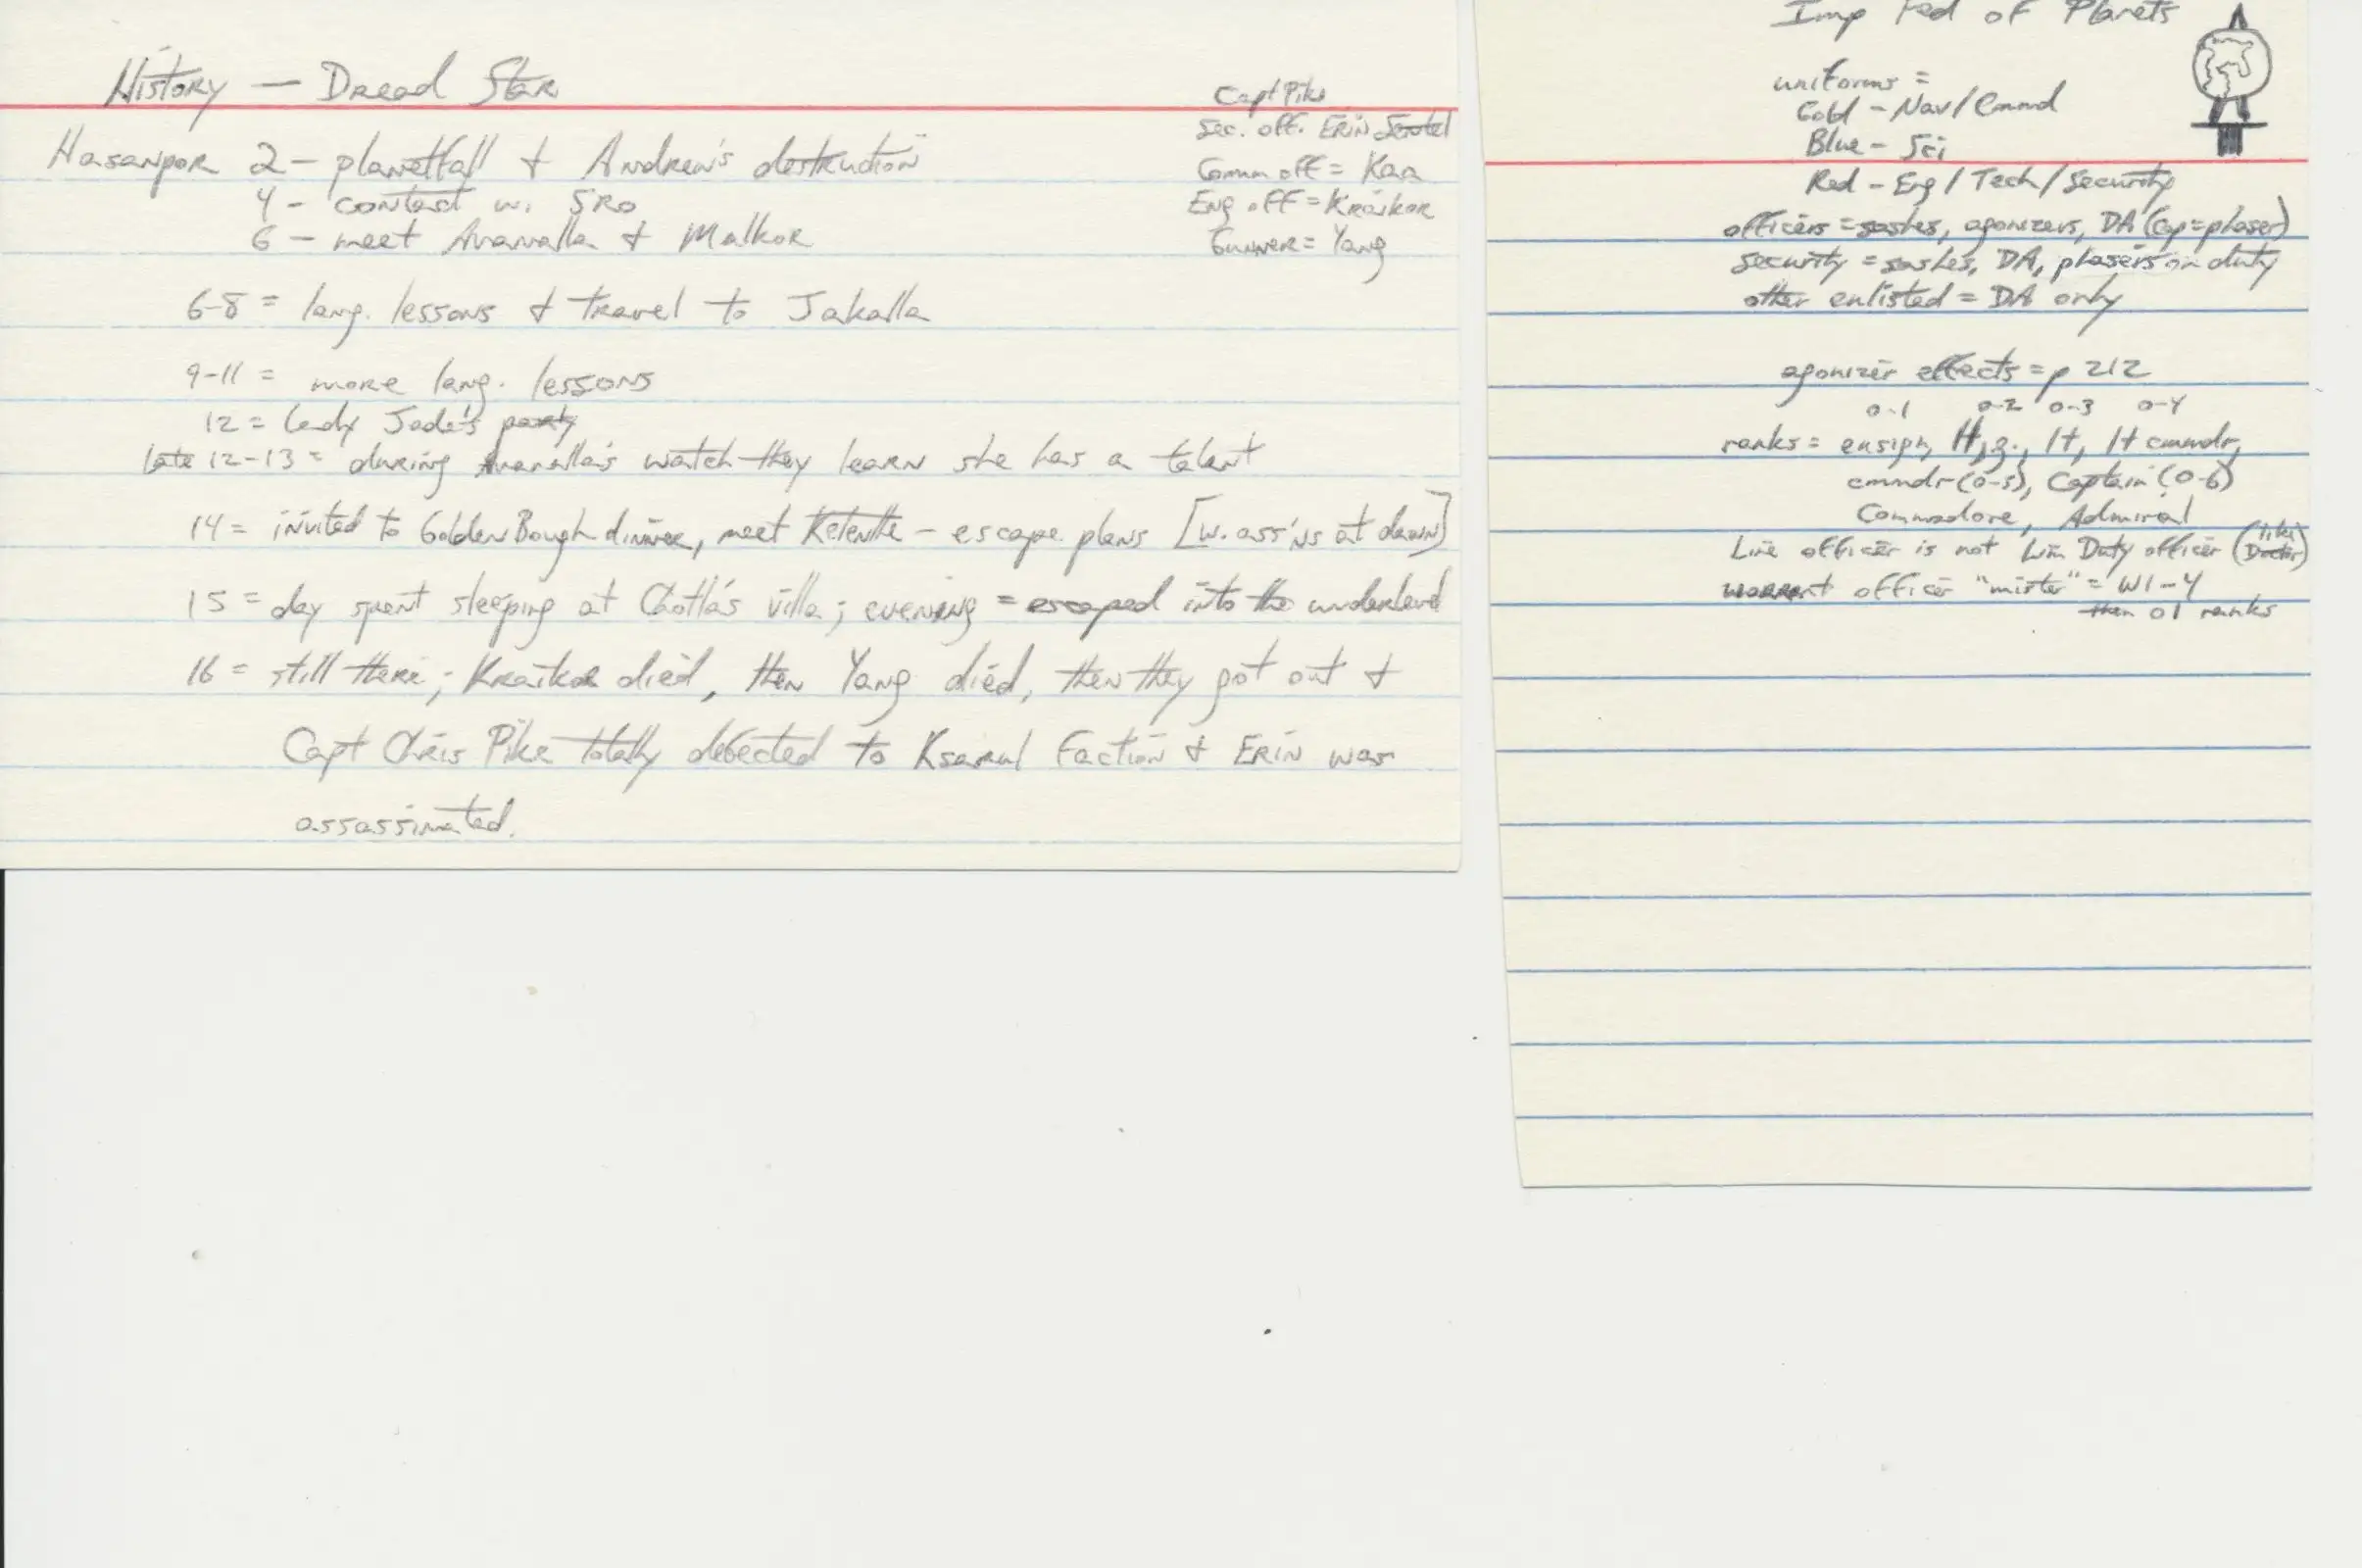 History — Dread Star
Capt Pike
Sec. off. Erin
Comm off = Kaa
Eng off = Kraikor
Gunner = Yang
Hasanpor 2 - planetfall & Andrew's destruction
4 - contact w. SRO
6 - meet Avanalla & Malkor
6-8 = lang. lessons & travel to Jakalla
9-11 = more lang. lessons
12 = Lady Jade's party
late 12-13 = during Avanalla's watch they learn she has a talent
14 = invited to Golden Bough dinner, meet Ketenthe - escape plans [w. ass'ns at dawn]
15 = day spent sleeping at Chotla's villa; evening = escaped into the underland
16 = still there; Kraikor died, then Yang died, then they got out &
Capt Chris Pike totally defected to Ksarul Faction & Erin was
assassinated.
Imp Fed of Planets
uniforms =
Gold - Nav/Cmmd
Blue - Sci
Red - Eng/Tech/Security
officers = sashes, agonizers, DA (cap=phaser)
security = sashes, DA, phasers on duty
other enlisted = DA only
agonizer effects = p 212
0-1 0-2 0-3 0-4
ranks = ensign, lt j.g., lt, lt cmmdr,
cmmdr (0-5), Captain (0-6)
Commodore, Admiral
Line officer is not Lim Duty officer (like Doctor)
warrant officer "mister" = W1-4
then 01 ranks